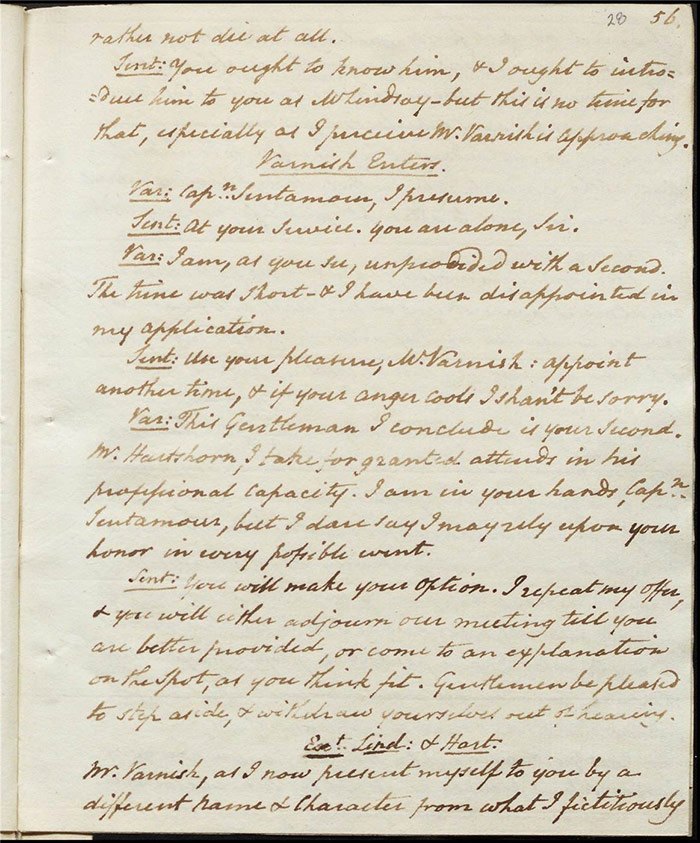 28 56.
rather not die at all.
Sent: You ought to know him, & I ought to intro=
=duce him to you as Mr Lindsay - but this is no time for
that, especially as I perceive Mr. Varnish is approaching.
Varnish Enters.
Var: Capn. Sentamour, I presume.
Sent: At your Service. you are alone, Sir.
Var: I am, as you see, unprovided with a Second.
The time was short - & I have been disappointed in
my application.
Sent: Use your pleasure, Mr. Varnish: appoint
another time, & if your anger cools I shan't be sorry.
Var: This Gentleman I conclude is your Second.
Mr. Hartshorn, I take for granted attends in his
professional Capacity. I am in your hands, Capn.
Sentamour, but I dare say I may rely upon your
honor in every possible event.
Sent: You will make your option. I repeat my offer,
& you will either adjourn our meeting till you
are better provided, or come to an explanation
on the Spot, as you think fit. Gentlemen be pleased
to step aside, & withdraw yourselves out of hearing.
Ext. Lind: & Hart.
Mr. Varnish, as I now present myself to you by a
different Name & Character from what I fictitiously